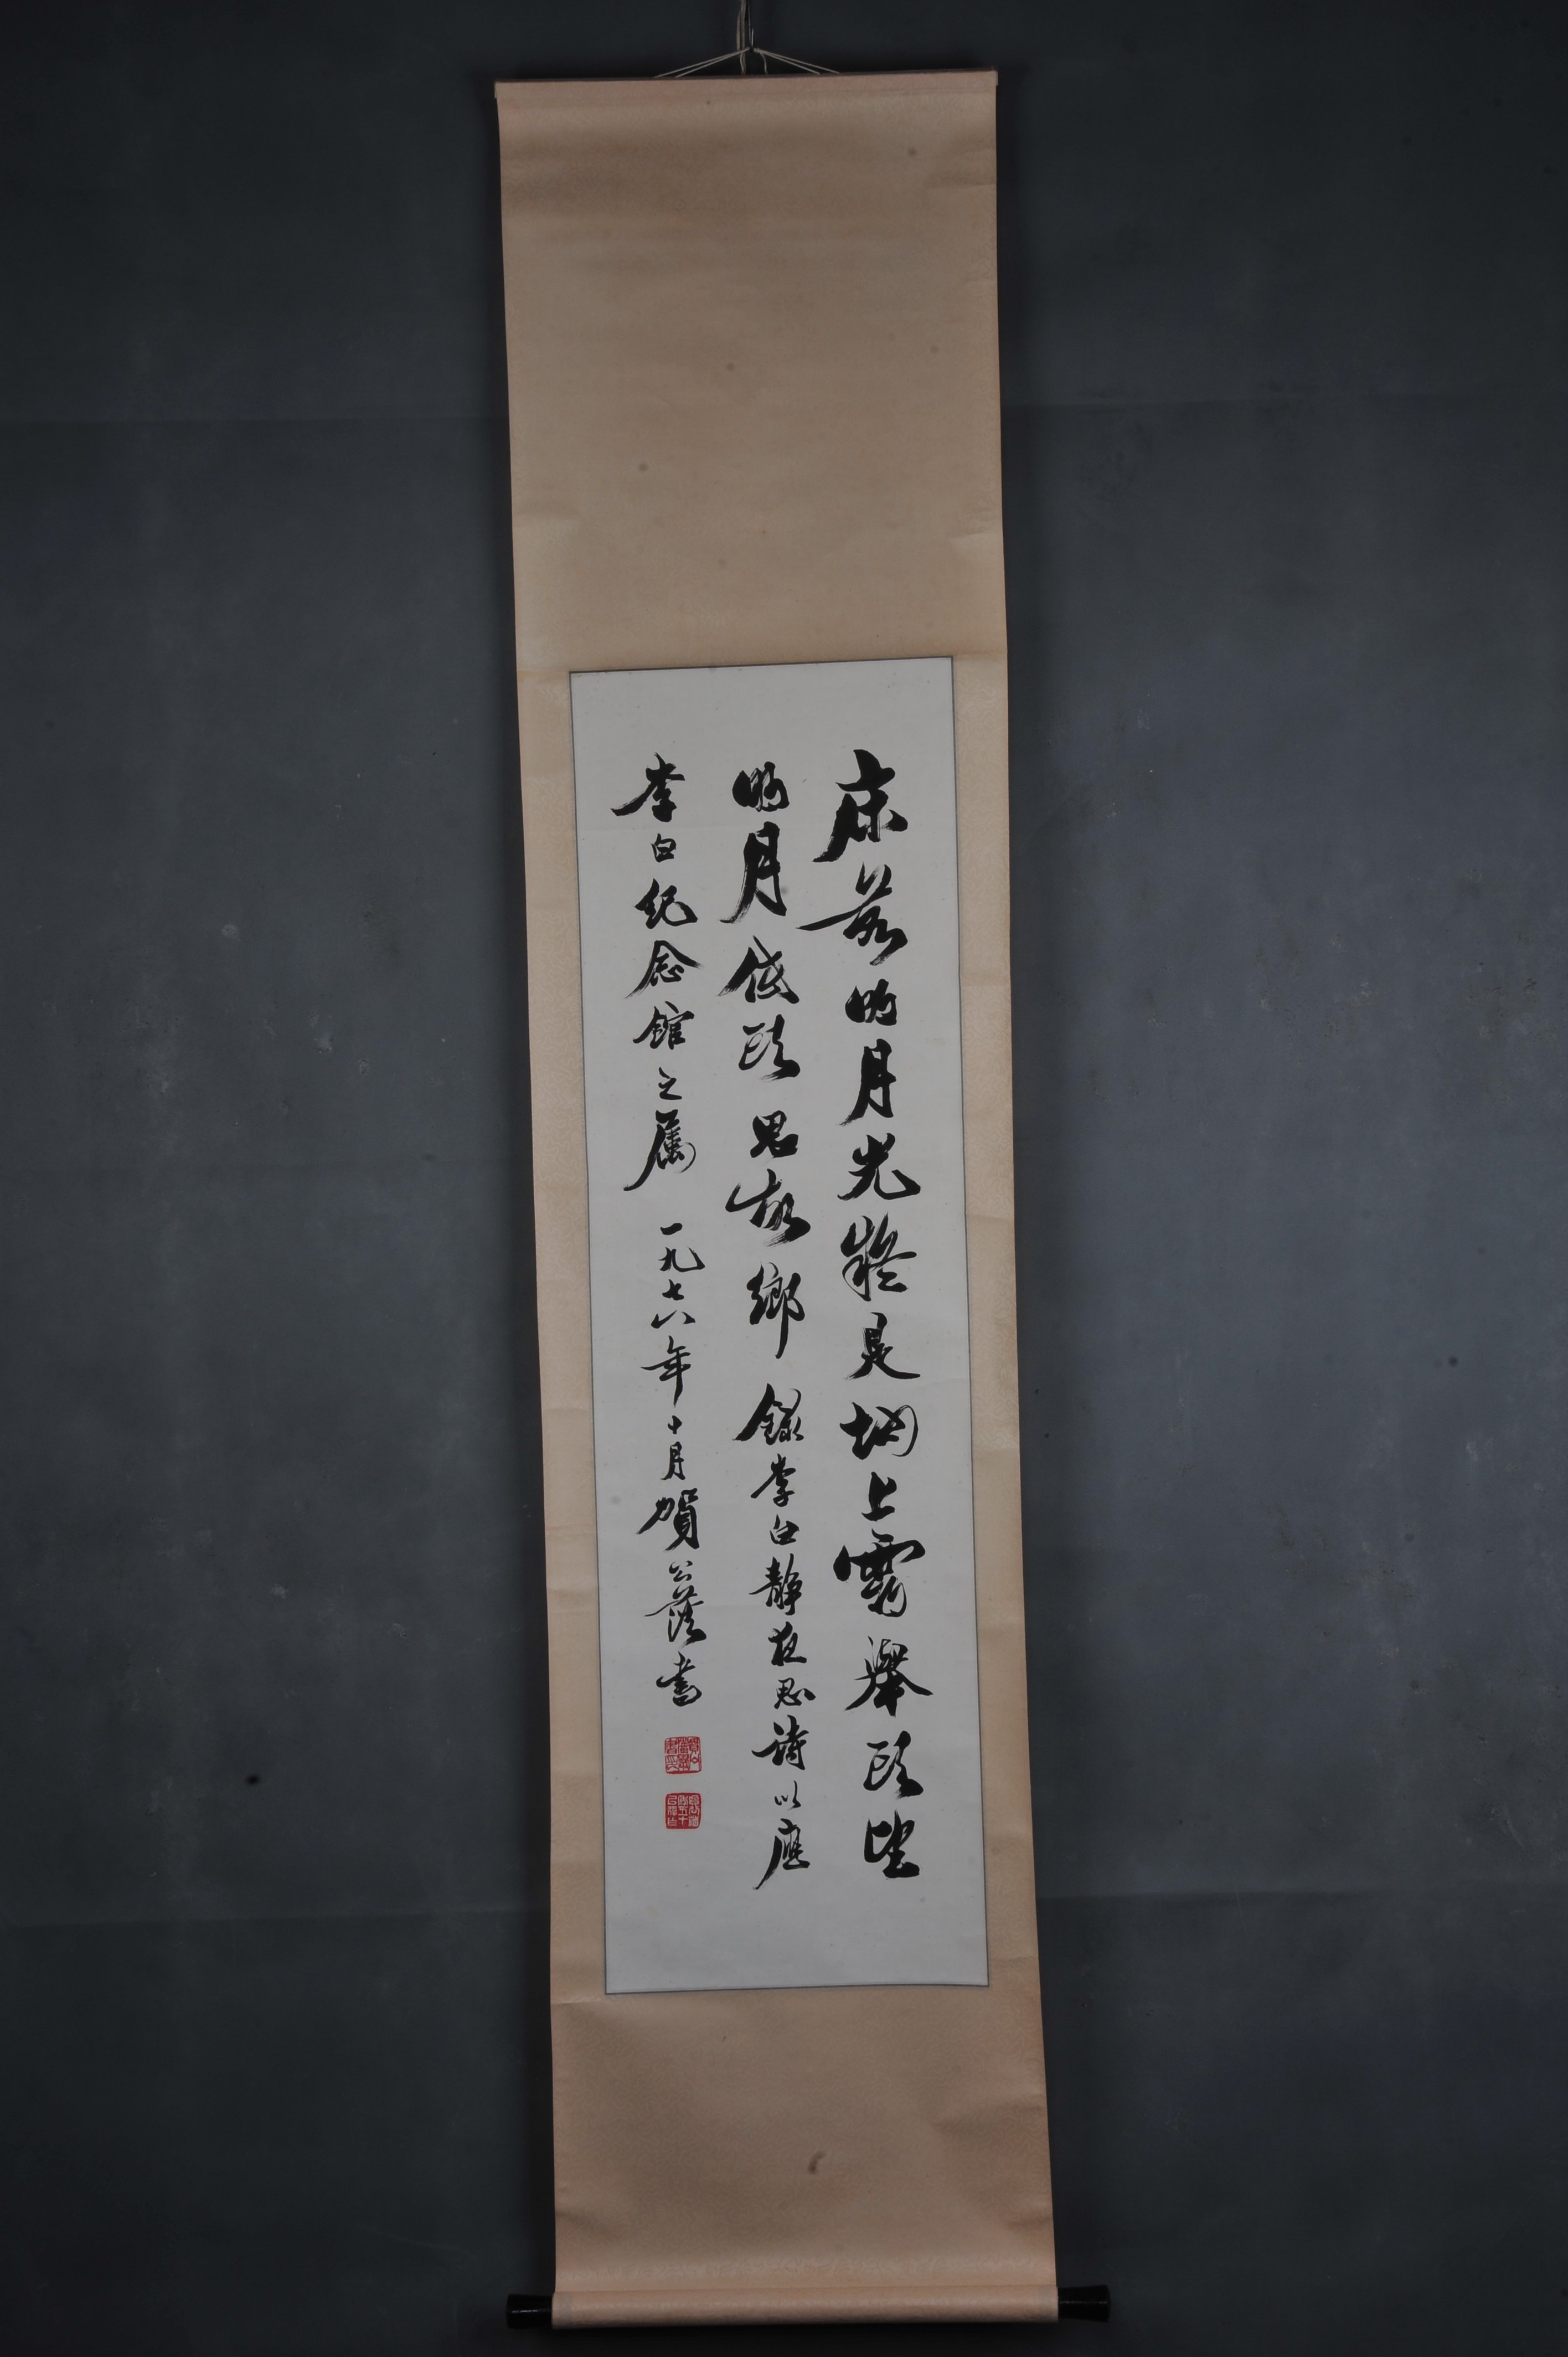 床前明月光疑是地上霜舉頭望
明月低頭思故鄉 錄李白靜夜思詩以應
李白紀念館之屬 一九七八年十月賀公蔭書